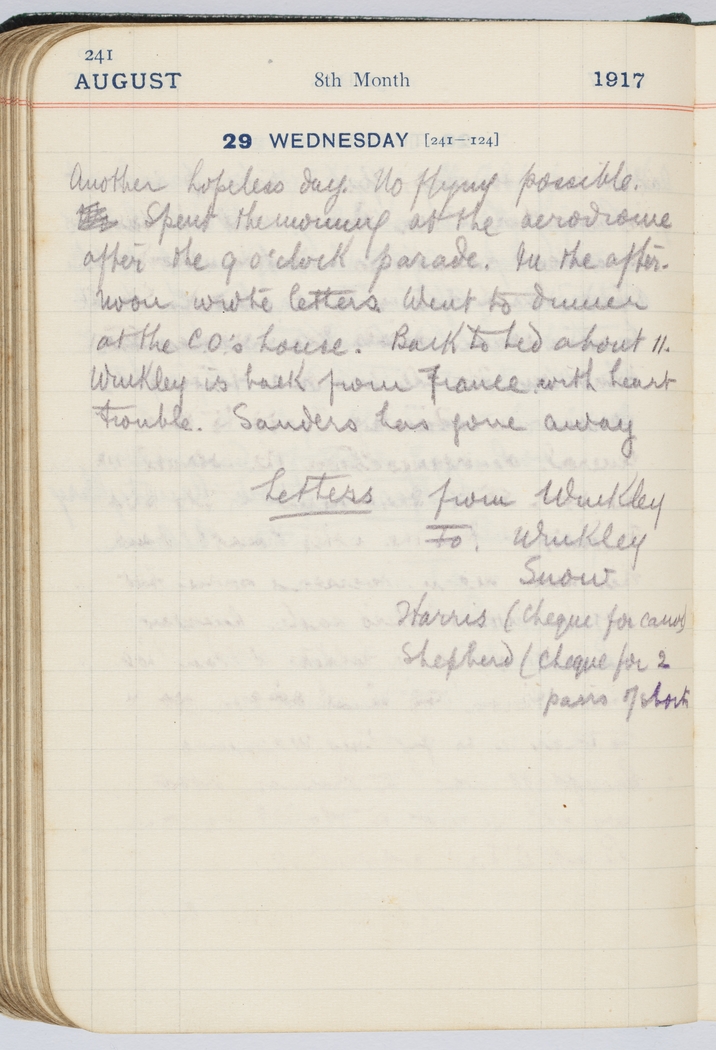 241
AUGUST 8th Month 1917
29 WEDNESDAY [241-124]
Another hopeless day. No flying possible.
Spent the morning at the aerodrome
after the 9 o'clock parade. In the after-
noon wrote letters. Went to dinner
at the CO's house. Back to bed about 11.
Winkley is back from France with heart
trouble. Sanders has gone away
Letters from Winkley
To. Winkley
Snow
Harris (Cheque for
Shepherd (Cheque for 2
pairs of